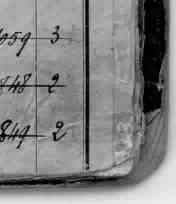 059 3
848 2
849 2